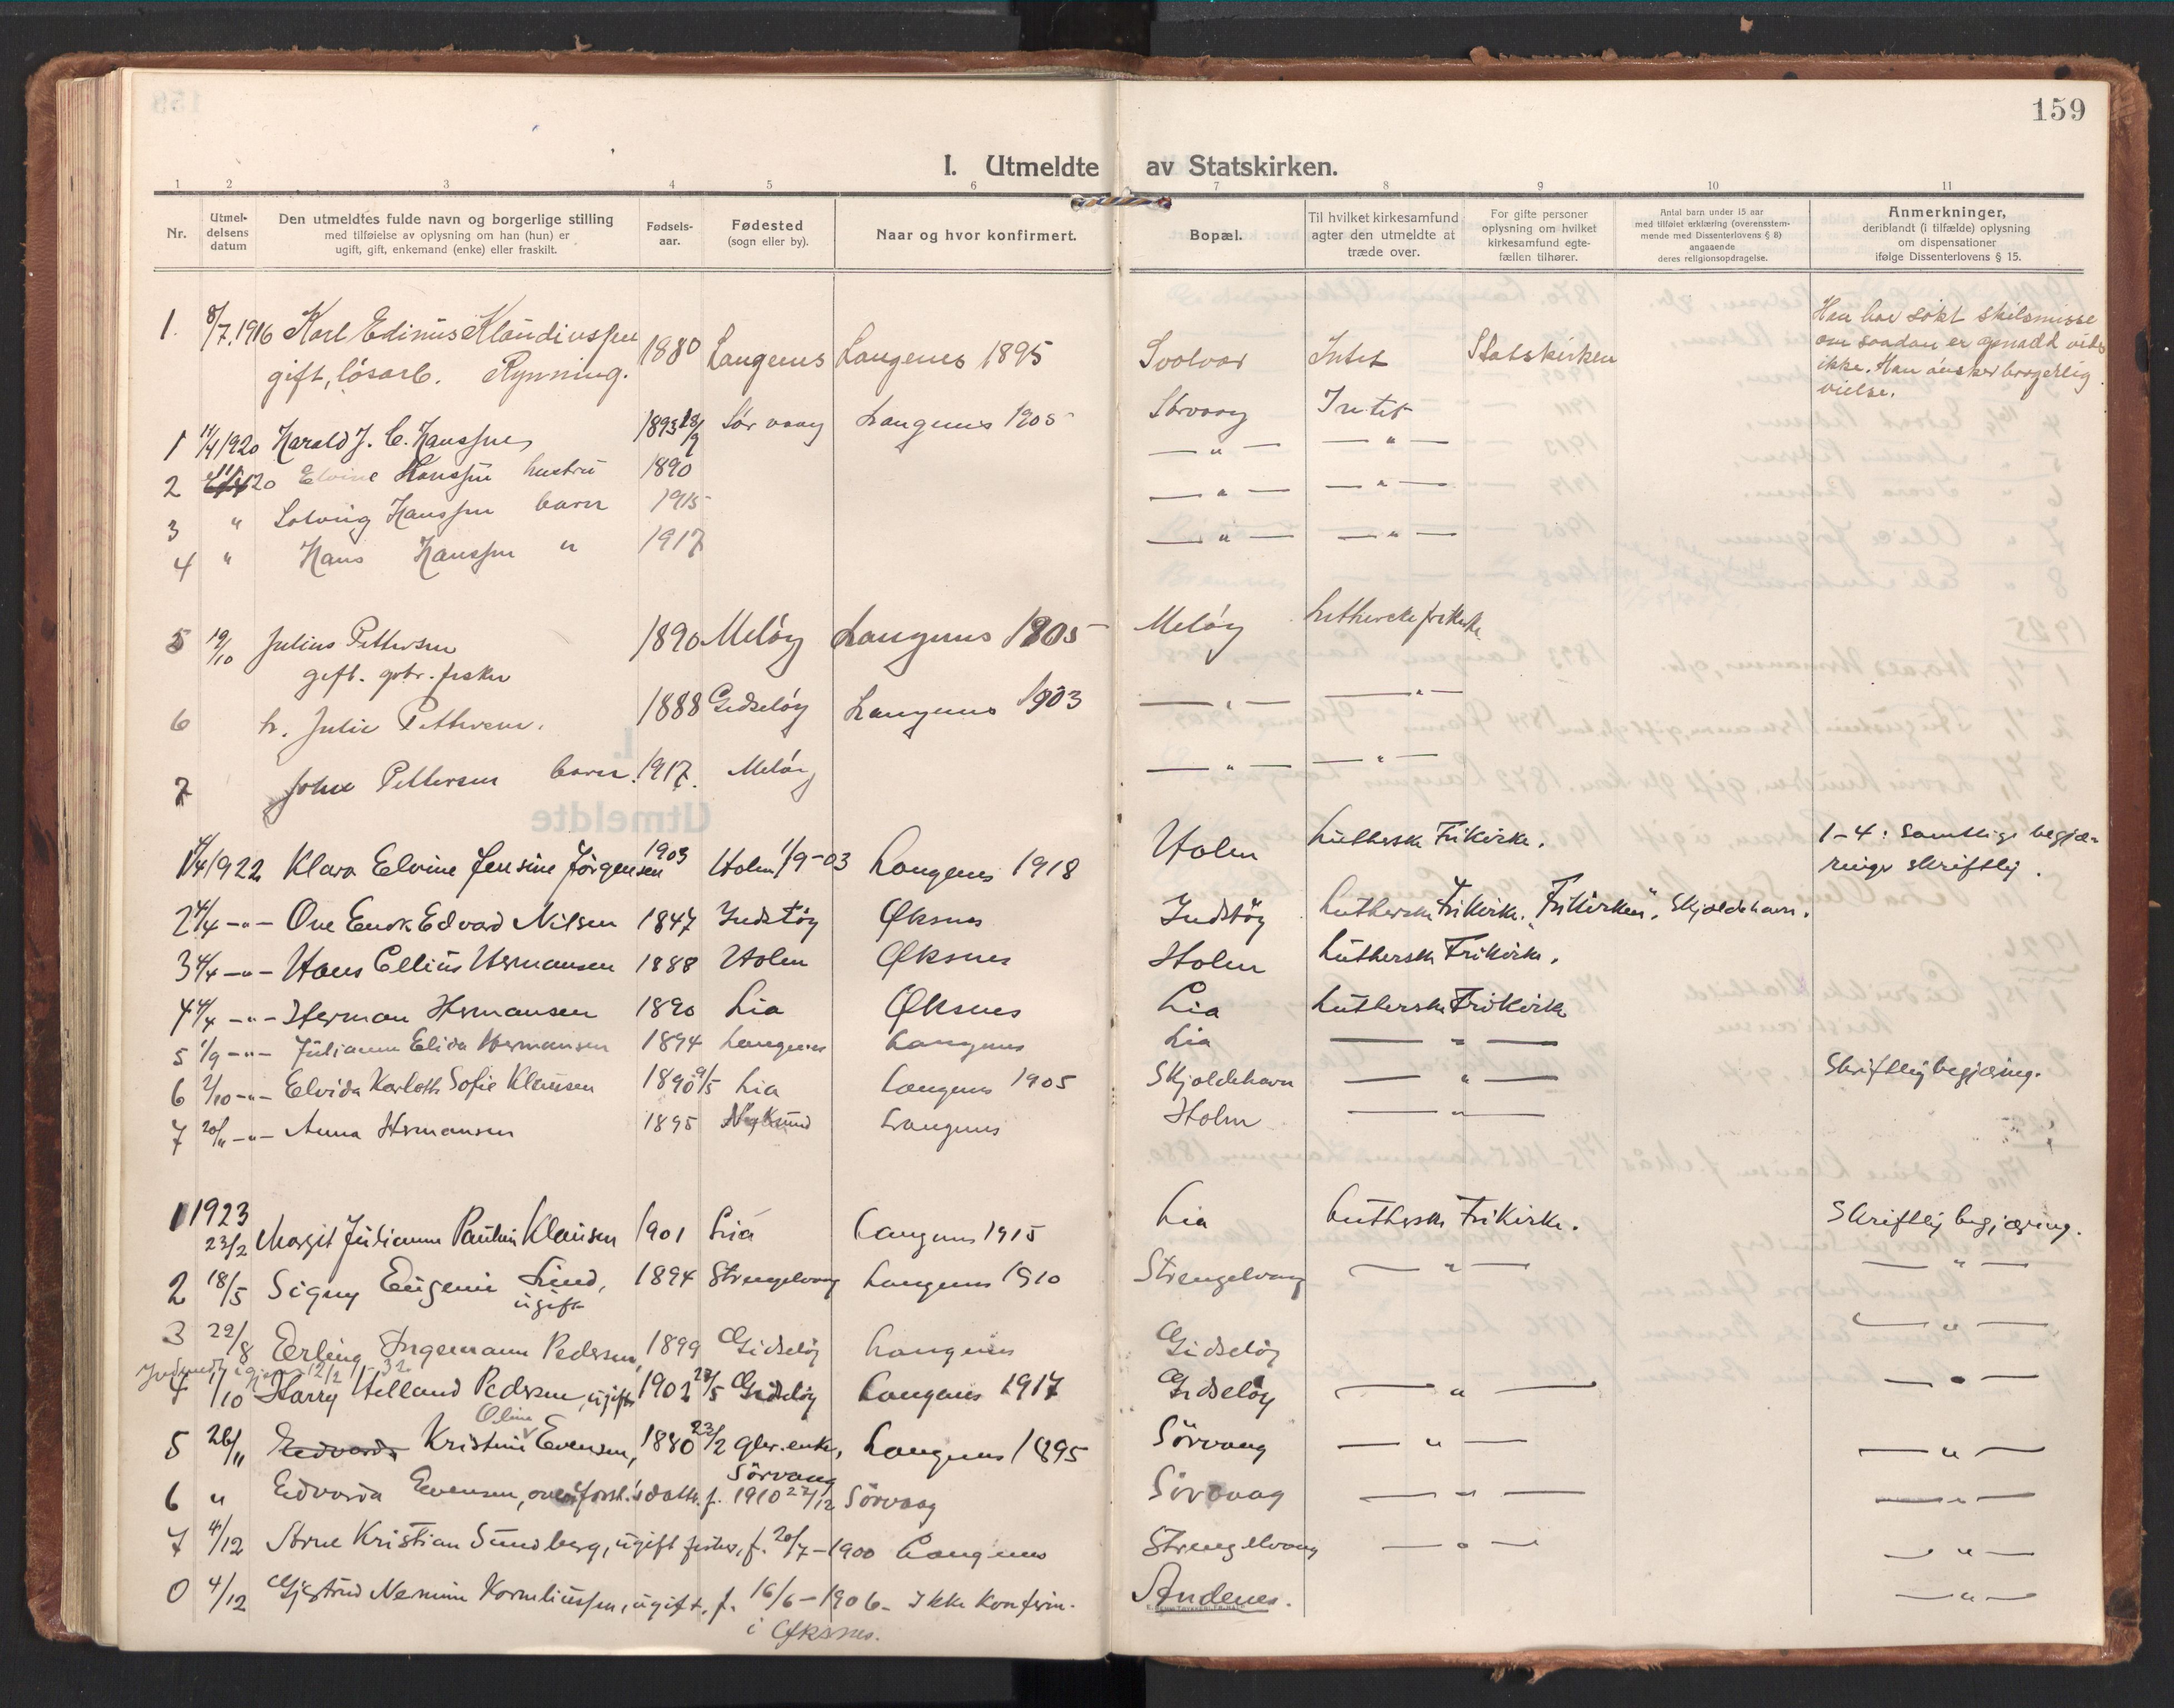 159
I. Utmeldte av Statskirken.
1 2 3 4 5 6 7 8 9 10 11
Nr.
Utmel-
delsens
datum
Den utmeldtes fulde navn og borgerlige stilling
med tilføielse av oplysning om han (hun) er
ugift, gift, enkemand (enke) eller fraskilt.
Fødsels-
aar.
Fødested
(sogn eller by).
Naar og hvor konfirmert.
Bopæl.
Til hvilket kirkesamfund
agter den utmeldte at
træde over.
For gifte personer
oplysning om hvilket
kirkesamfund egte-
fællen tilhører.
Antal barn under 15 aar
med tilføiet erklæring (overensstem-
mende med Dissenterlovens § 8)
angaaende
deres religionsopdragelse.
Anmerkninger,
deriblandt (i tilfælde) oplysning
om dispensationer
ifølge Dissenterlovens § 15.
1. 8/7.1916 Karl Edinus Klaudiussen 1880 Langenes Langenes 1895 Svolvær Intet Statskirken
gift, lösarb. Rynning.
Han har søkt skilsmisse
om saadan er opnaadd vites
ikke. Han ønsker borgerlig
vielse.
1 14/4 1920 Harald J. C. Hanssen 1893 18/9 Sörvaag Langenes 1905 Sörvaag Intet
2 20 Elvine Hanssen hustru 1890 — " — — " —
3 " Solveig Hanssen barn 1915 — " — — " —
4 " Hans Hanssen " 1917 — " — — " —
5 19/10 Julius Pettersen 1890 Melöy Langenes 1905 Melöy Lutherske frikirke
gift. gbr. fisker
6 h. Julie Pettersen. 1888 Gidselöy Langenes 1903 — " — — " —
7 Pettersen barn. 1917. Melöy — " — — " —
1 4/4 1922 Klara Elvine Jensine Jörgensen 1903 Holm 1/9-03 Langenes 1918 Holm Lutherske Frikirke. 1-4: Samtlige begjæ-
ringer skriftlig.
2 4/4 -"- Ove Enok Edvard Nilsen 1847 Indstöy Øksnes Indstöy Lutherske Frikirke. "Frikirken". Skjoldehavn.
3 4/4 -"- Hans Ellius Hermansen 1888 Holm Øksnes Holm Lutherske Frikirke.
4 4/4 -"- Herman Hermansen 1890 Lia Øksnes Lia Lutherske Frikirke
5 1/9 -"- Julianne Elida Hermansen 1894 Langenes Langenes Lia — " —
6 2/10 -"- Elvida Karloth Sofie Klausen 1890 9/5 Lia Langenes 1905 Skjoldehavn — " — Skriftlig begjæring.
7 20/11 -"- Anna Hermansen 1895 Nyksund Langenes Holm — " —
1 1923
23/2 Margit Julianne Pauline Klausen 1901 Lia Langenes 1915 Lia Lutherske Frikirke. Skriftlig begjæring.
2 18/5 Signy Eugenie Lind, 1894 Strengelvaag Langenes 1910 Strengelvaag — " — — " —
ugift
3 22/8 Erling Ingemann Pedersen, 1899 Gidselöy Langenes Gidselöy — " —
Indmeldt igjen 12/2-32
4 17/10 Harry Helland Pedersen, ugift 1902 23/5 Gidselöy Langenes 1917 Gidselöy — " — — " —
Oline
5 26/11 Edvarda Kristine Evensen, 1880 23/2 gbr.enke, Langenes 1895 Sörvaag — " — — " —
Sörvaag
6 " Edvarda Evensen, datter f. 1910 27/12 Sörvaag Sörvaag — " — — " —
7 4/12 Arne Kristian Sundberg, ugift fisker, f. 20/7-1900 Langenes Strengelvaag — " — — " —
0 4/12 Gjertrud Nermine Korneliussen, ugift, f. 16/6-1906. Ikke konfirm. Andenes. — " —
i Øksnes.